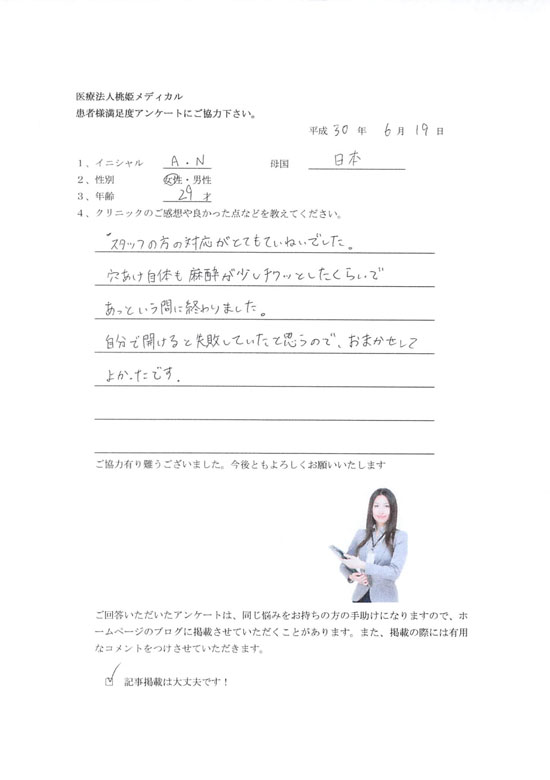 医療法人桃姫メディカル
患者様満足度アンケートにご協力下さい。
平成 30 年 6 月 19 日
1、イニシャル A・N 母国 日本
2、性別 女性・男性
3、年齢 29 才
4、クリニックのご感想や良かった点などを教えてください。
スタッフの方の対応がとてもていねいでした。
穴あけ自体も麻酔が少しチクッとしたくらいで
あっという間に終わりました。
自分で開けると失敗していたと思うので、おまかせして
よかったです.
ご協力有り難うございました。今後ともよろしくお願いいたします
ご回答いただいたアンケートは、同じ悩みをお持ちの方の手助けになりますので、ホ
ームページのブログに掲載させていただくことがあります。また、掲載の際には有用
なコメントをつけさせていただきます。
☑ 記事掲載は大丈夫です！